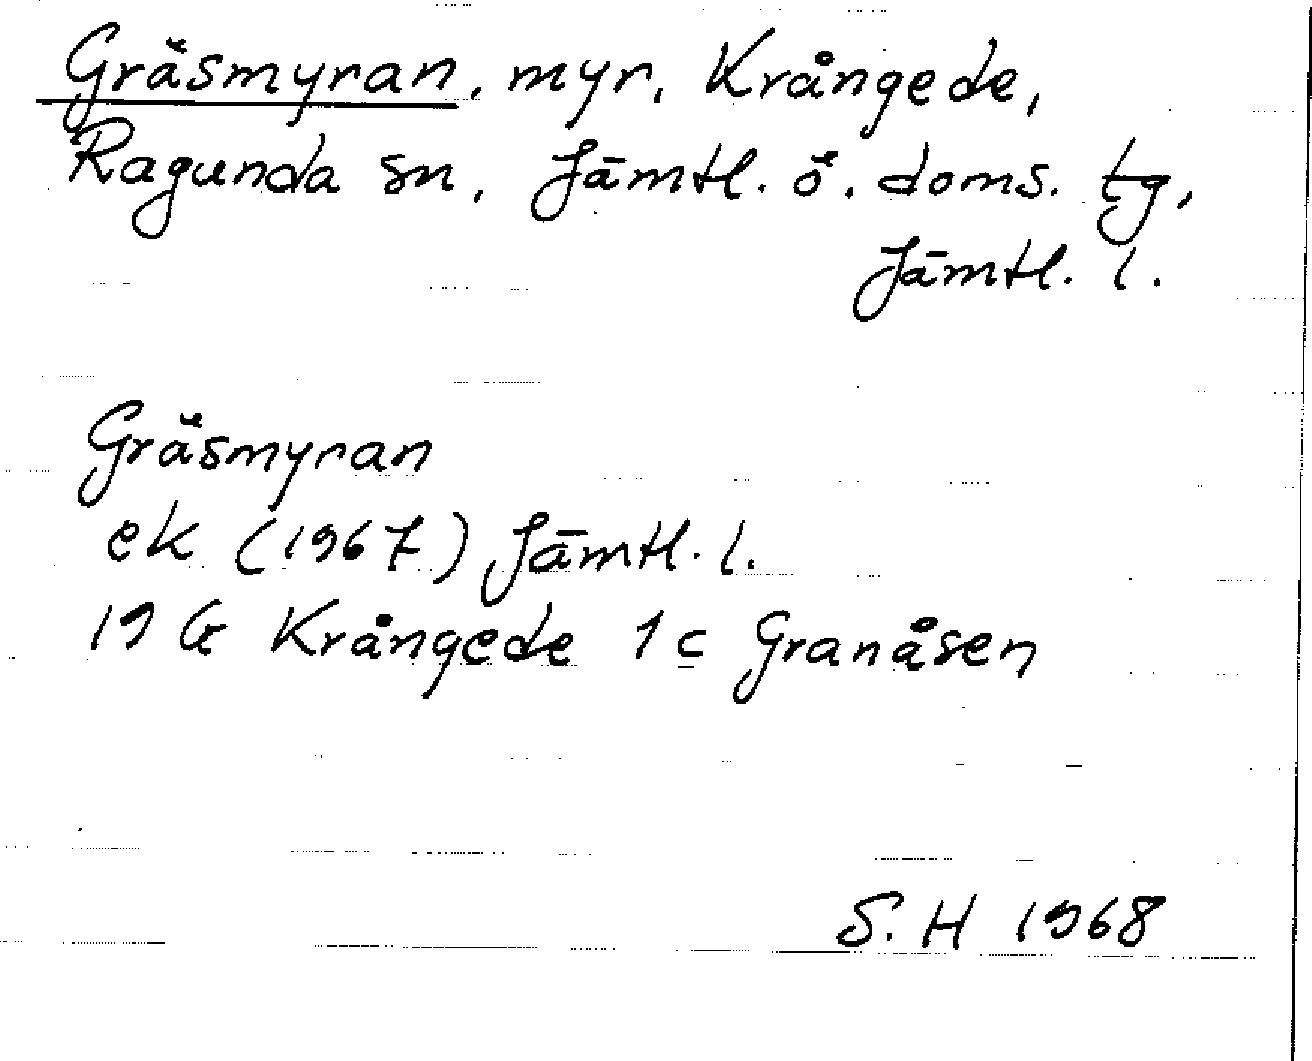 Gräsmyran, myr, Krångede,
Ragunda sn, Jämtl. ö. doms. tg,
Jämtl. l.
Gräsmyran
ek (1967) Jämtl. l.
19 G Krångede 1c Granåsen
S. H 1968